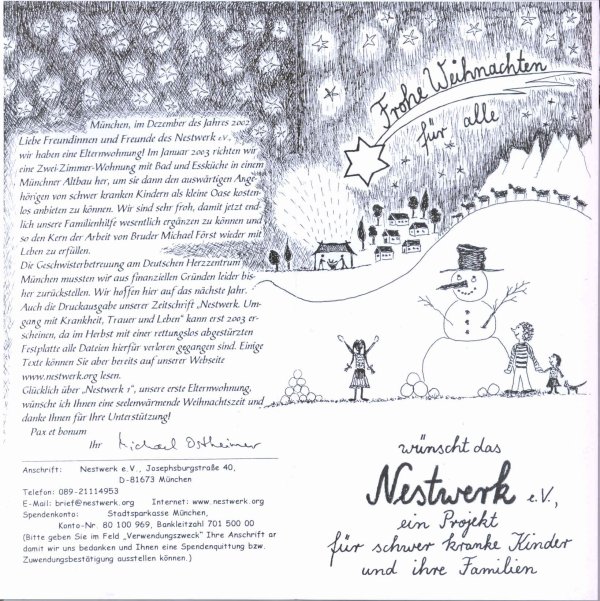 München, im Dezember des Jahres 2002
Liebe Freundinnen und Freunde des Nestwerk e.V.,
wir haben eine Elternwohnung! Im Januar 2003 richten wir
eine Zwei-Zimmer-Wohnung mit Bad und Essküche in einem
Münchner Altbau her, um sie dann den auswärtigen Ange-
hörigen von schwer kranken Kindern als kleine Oase kosten-
los anbieten zu können. Wir sind sehr froh, damit jetzt end-
lich unsere Familienhilfe wesentlich ergänzen zu können und
so den Kern der Arbeit von Bruder Michael Först wieder mit
Leben zu erfüllen.
Die Geschwisterbetreuung am Deutschen Herzzentrum
München mussten wir aus finanziellen Gründen leider bis-
her zurückstellen. Wir hoffen hier auf das nächste Jahr.
Auch die Druckausgabe unserer Zeitschrift „Nestwerk. Um-
gang mit Krankheit, Trauer und Leben“ kann erst 2003 er-
scheinen, da im Herbst mit einer rettungslos abgestürzten
Festplatte alle Dateien hierfür verloren gegangen sind. Einige
Texte können Sie aber bereits auf unserer Webseite
www.nestwerk.org lesen.
Glücklich über „Nestwerk 1“, unsere erste Elternwohnung,
wünsche ich Ihnen eine seelenwärmende Weihnachtszeit und
danke Ihnen für Ihre Unterstützung!
Pax et bonum
Ihr Michael Ostheimer
Anschrift: Nestwerk e.V., Josephsburgstraße 40,
D-81673 München
Telefon: 089-21114953
E-Mail: brief@nestwerk.org Internet: www.nestwerk.org
Spendenkonto: Stadtsparkasse München,
Konto-Nr. 80 100 969, Bankleitzahl 701 500 00
(Bitte geben Sie im Feld „Verwendungszweck“ Ihre Anschrift an
damit wir uns bedanken und Ihnen eine Spendenquittung bzw.
Zuwendungsbestätigung ausstellen können.)
Frohe Weihnachten
für alle
wünscht das
Nestwerk e.V.,
ein Projekt
für schwer kranke Kinder
und ihre Familien